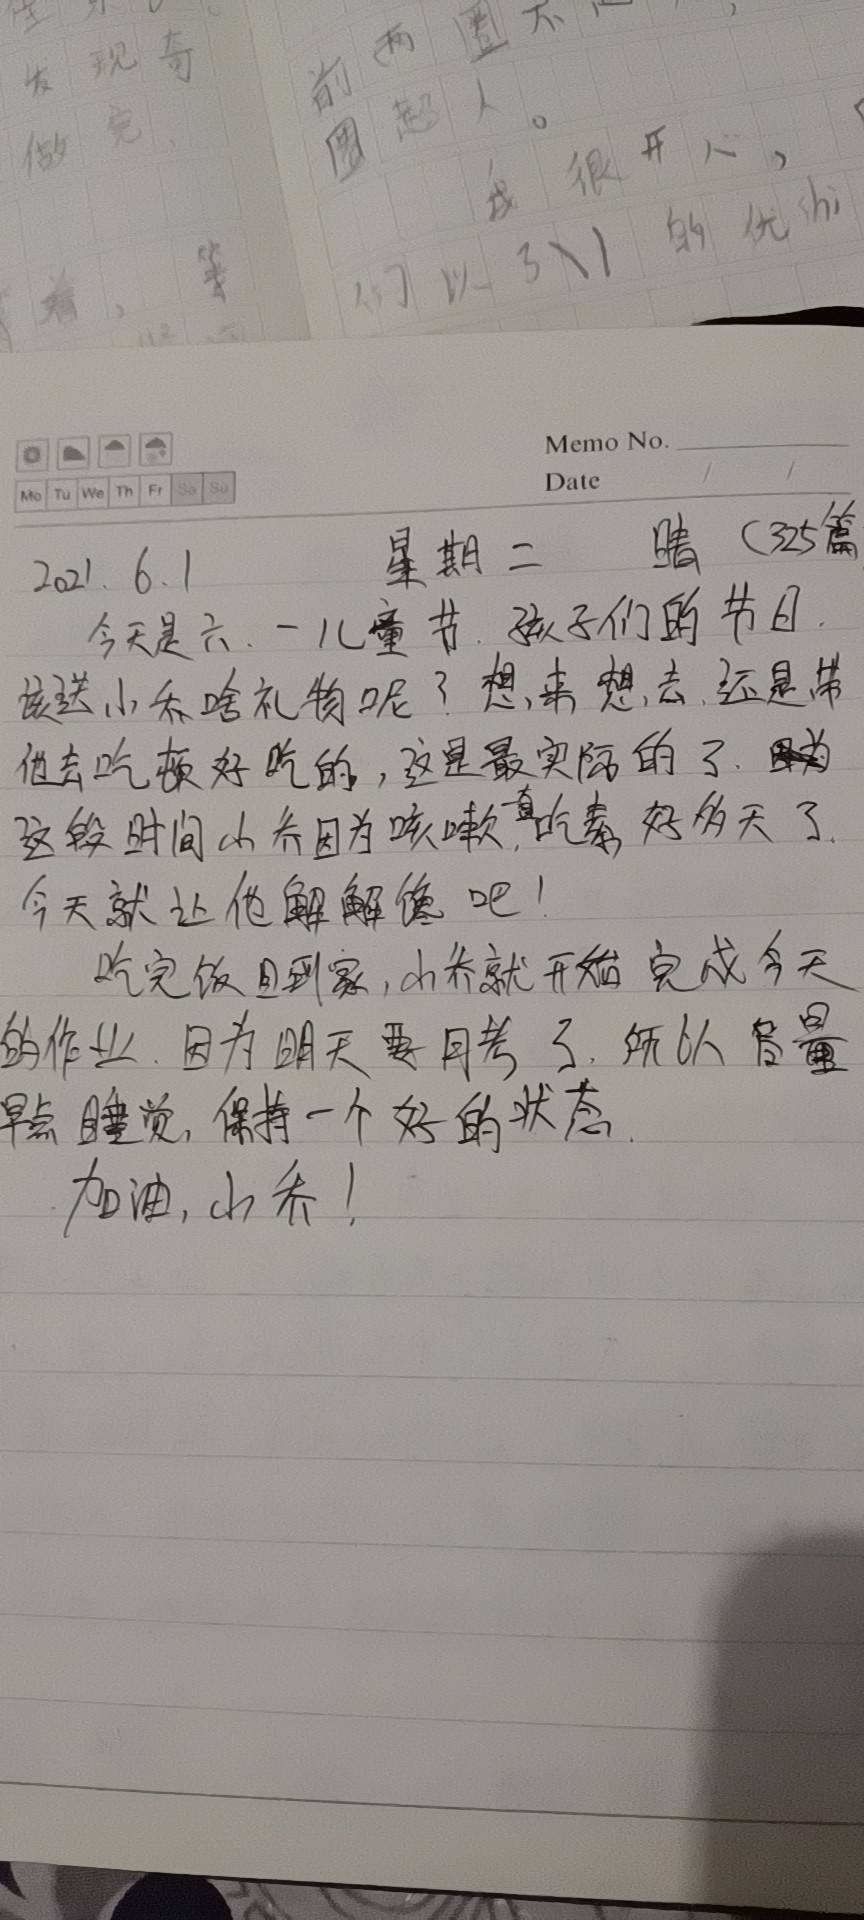 发现奇
做完
着，等
前两圈不
圈超人。
我很开心，
们以3
的优
Memo No.
Date / /
Mo Tu We Th Fr Sa Su
2021.6.1 星期二 晴（325篇
今天是六.一儿童节.孩子们的节日.
该送小乔啥礼物呢？想来想去.还是带
他去吃顿好吃的，这是最实际的了.
这段时间小乔因为咳嗽，真吃素好多天了.
今天就让他解解馋吧！
吃完饭回到家，小乔就开始完成今天
的作业.因为明天要月考了.所以尽量
早点睡觉，保持一个好的状态.
加油，小乔！